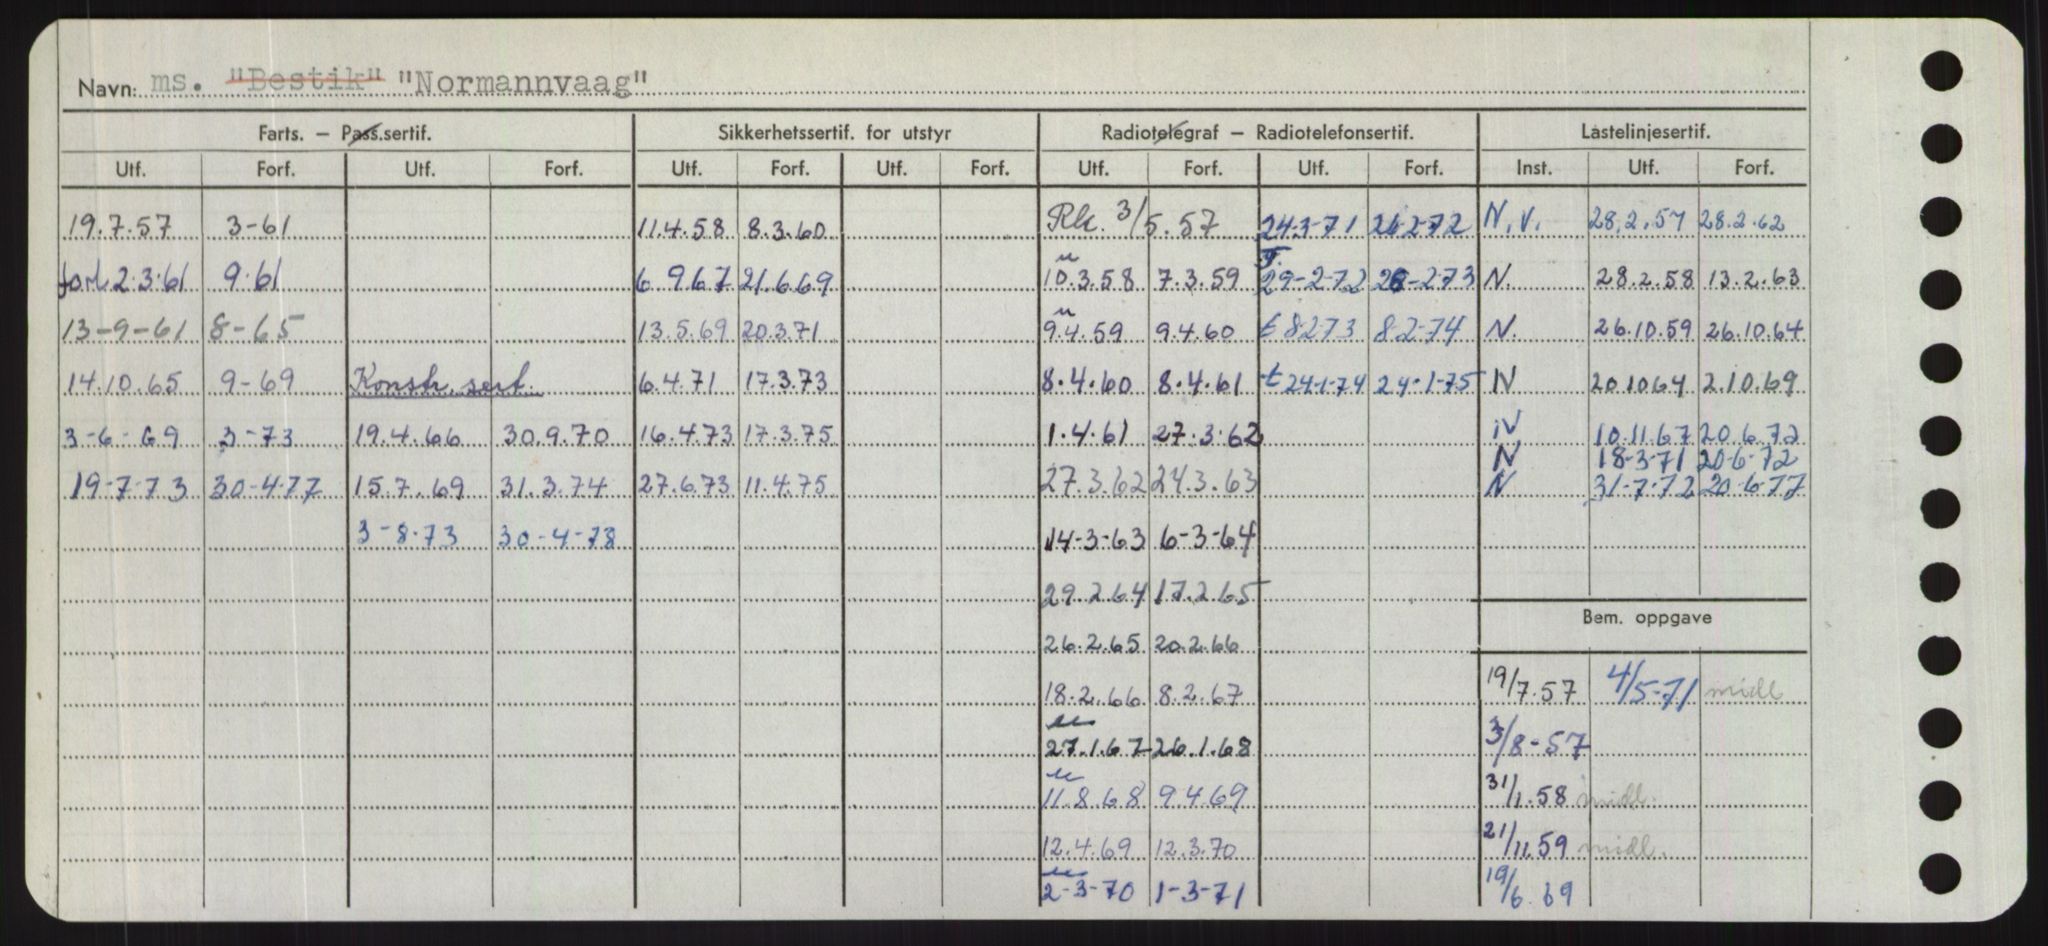 Navn: ms. "Bestik" "Normannvaag"
Farts. – Pass.sertif. Sikkerhetssertif. for utstyr Radiotelegraf – Radiotelefonsertif. Lastelinjesertif.
Utf. Forf. Utf. Forf. Utf. Forf. Utf. Forf. Utf. Forf. Utf. Forf. Inst. Utf. Forf.
19.7.57 3-61 11.4.58 8.3.60 Rk. 3/5.57 24-3-71 26-2-72 N.V. 28.2.57 28.2.62
forl 2.3.61 9.61 6.9.67 21.6.69 10.3.58 7.3.59 29-2-72 28-2-73 N. 28.2.58 13.2.63
13-9-61 8-65 13.5.69 20.3.71 9.4.59 9.4.60 t 8-2-73 8-2-74 N. 26.10.59 26.10.64
14.10.65 9-69 Konstr. sert. 6.4.71 17.3.73 8.4.60 8.4.61 t 24-1-74 24-1-75 N 20.10.64 2.10.69
3-6-69 3-73 19.4.66 30.9.70 16.4.73 17.3.75 1.4.61 27.3.62 N 10.11.67 20.6.72
N 18-3-71 20-6-72
19-7-73 30-4-77 15.7.69 31.3.74 27.6.73 11.4.75 27.3.62 24.3.63 N 31-7-72 20-6-77
3-8-73 30-4-78 14-3-63 6-3-64
29.2.64 17.2.65
Bem. oppgave
26.2.65 20.2.66
18.2.66 8.2.67 19/7.57 4/5-71 midl
27.1.67 26.1.68 3/8-57
11.8.68 9.4.69 31/1.58 midl.
12.4.69 12.3.70 21/11.59 midl.
2-3-70 1-3-71 19/6.69